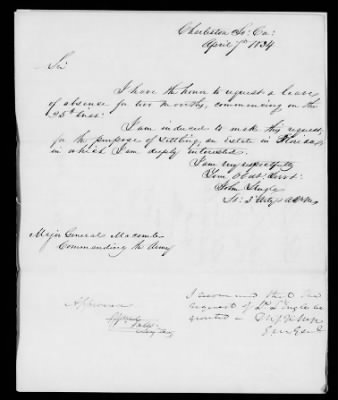 Charleston So: Ca:
April 7th 1834
Sir
I have the honor to request a leave
of absence for two months, commencing on the
25th Inst:
I am induced to make this request
for the purpose of settling, an estate in Florida,
in which I am deeply interested.
I am very respectfully
Your Obdt: Servt:
John
Major General Macomb
Commanding the Army
Approved
I recommend that the
request of Lt
granted